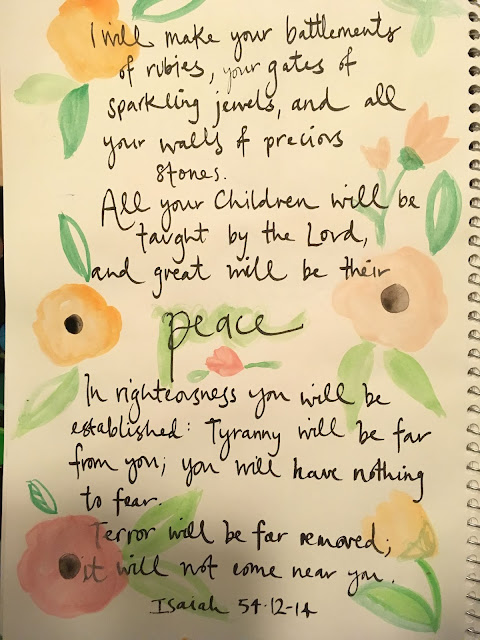 I will make your battlements
of rubies, your gates of
sparkling jewels, and all
your walls of precious
stones.
All your Children will be
taught by the Lord,
and great will be their
peace
In righteousness you will be
established: Tyranny will be far
from you; you will have nothing
to fear.
Terror will be far removed;
it will not come near you.
Isaiah 54.12-14